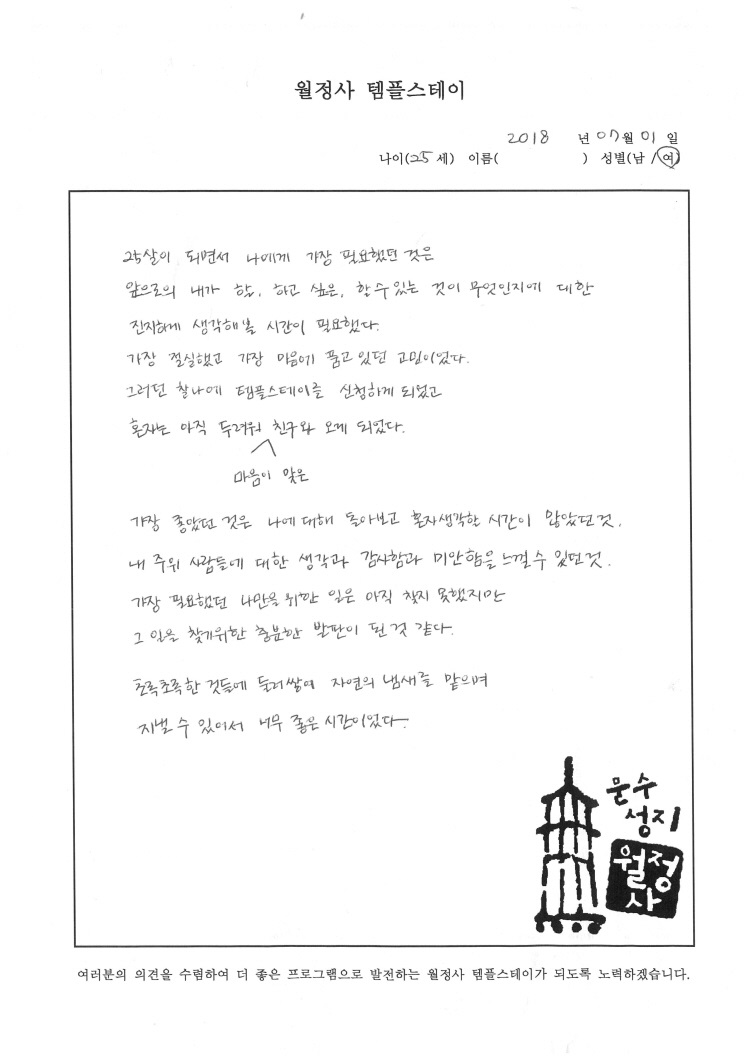 월정사 템플스테이
2018 년 07월 01 일
나이(25 세) 이름( ) 성별(남 / 여)
25살이 되면서 나에게 가장 필요했던 것은
앞으로의 내가 할, 하고 싶은, 할 수 있는 것이 무엇인지에 대한
진지하게 생각해볼 시간이 필요했다.
가장 절실했고 가장 마음에 품고 있던 고민이었다.
그러던 찰나에 템플스테이를 신청하게 되었고
혼자는 아직 두려워 친구와 오게 되었다.
마음이 맞은
가장 좋았던 것은 나에 대해 돌아보고 혼자 생각한 시간이 많았던 것.
내 주위 사람들에 대한 생각과 감사함과 미안함을 느낄 수 있던 것.
가장 필요했던 나만을 위한 일은 아직 찾지 못했지만
그 일을 찾기위한 충분한 발판이 된 것 같다.
초록초록한 것들에 둘러쌓여 자연의 냄새를 맡으며
지낼 수 있어서 너무 좋은 시간이었다.
문수
성지
월정
사
여러분의 의견을 수렴하여 더 좋은 프로그램으로 발전하는 월정사 템플스테이가 되도록 노력하겠습니다.